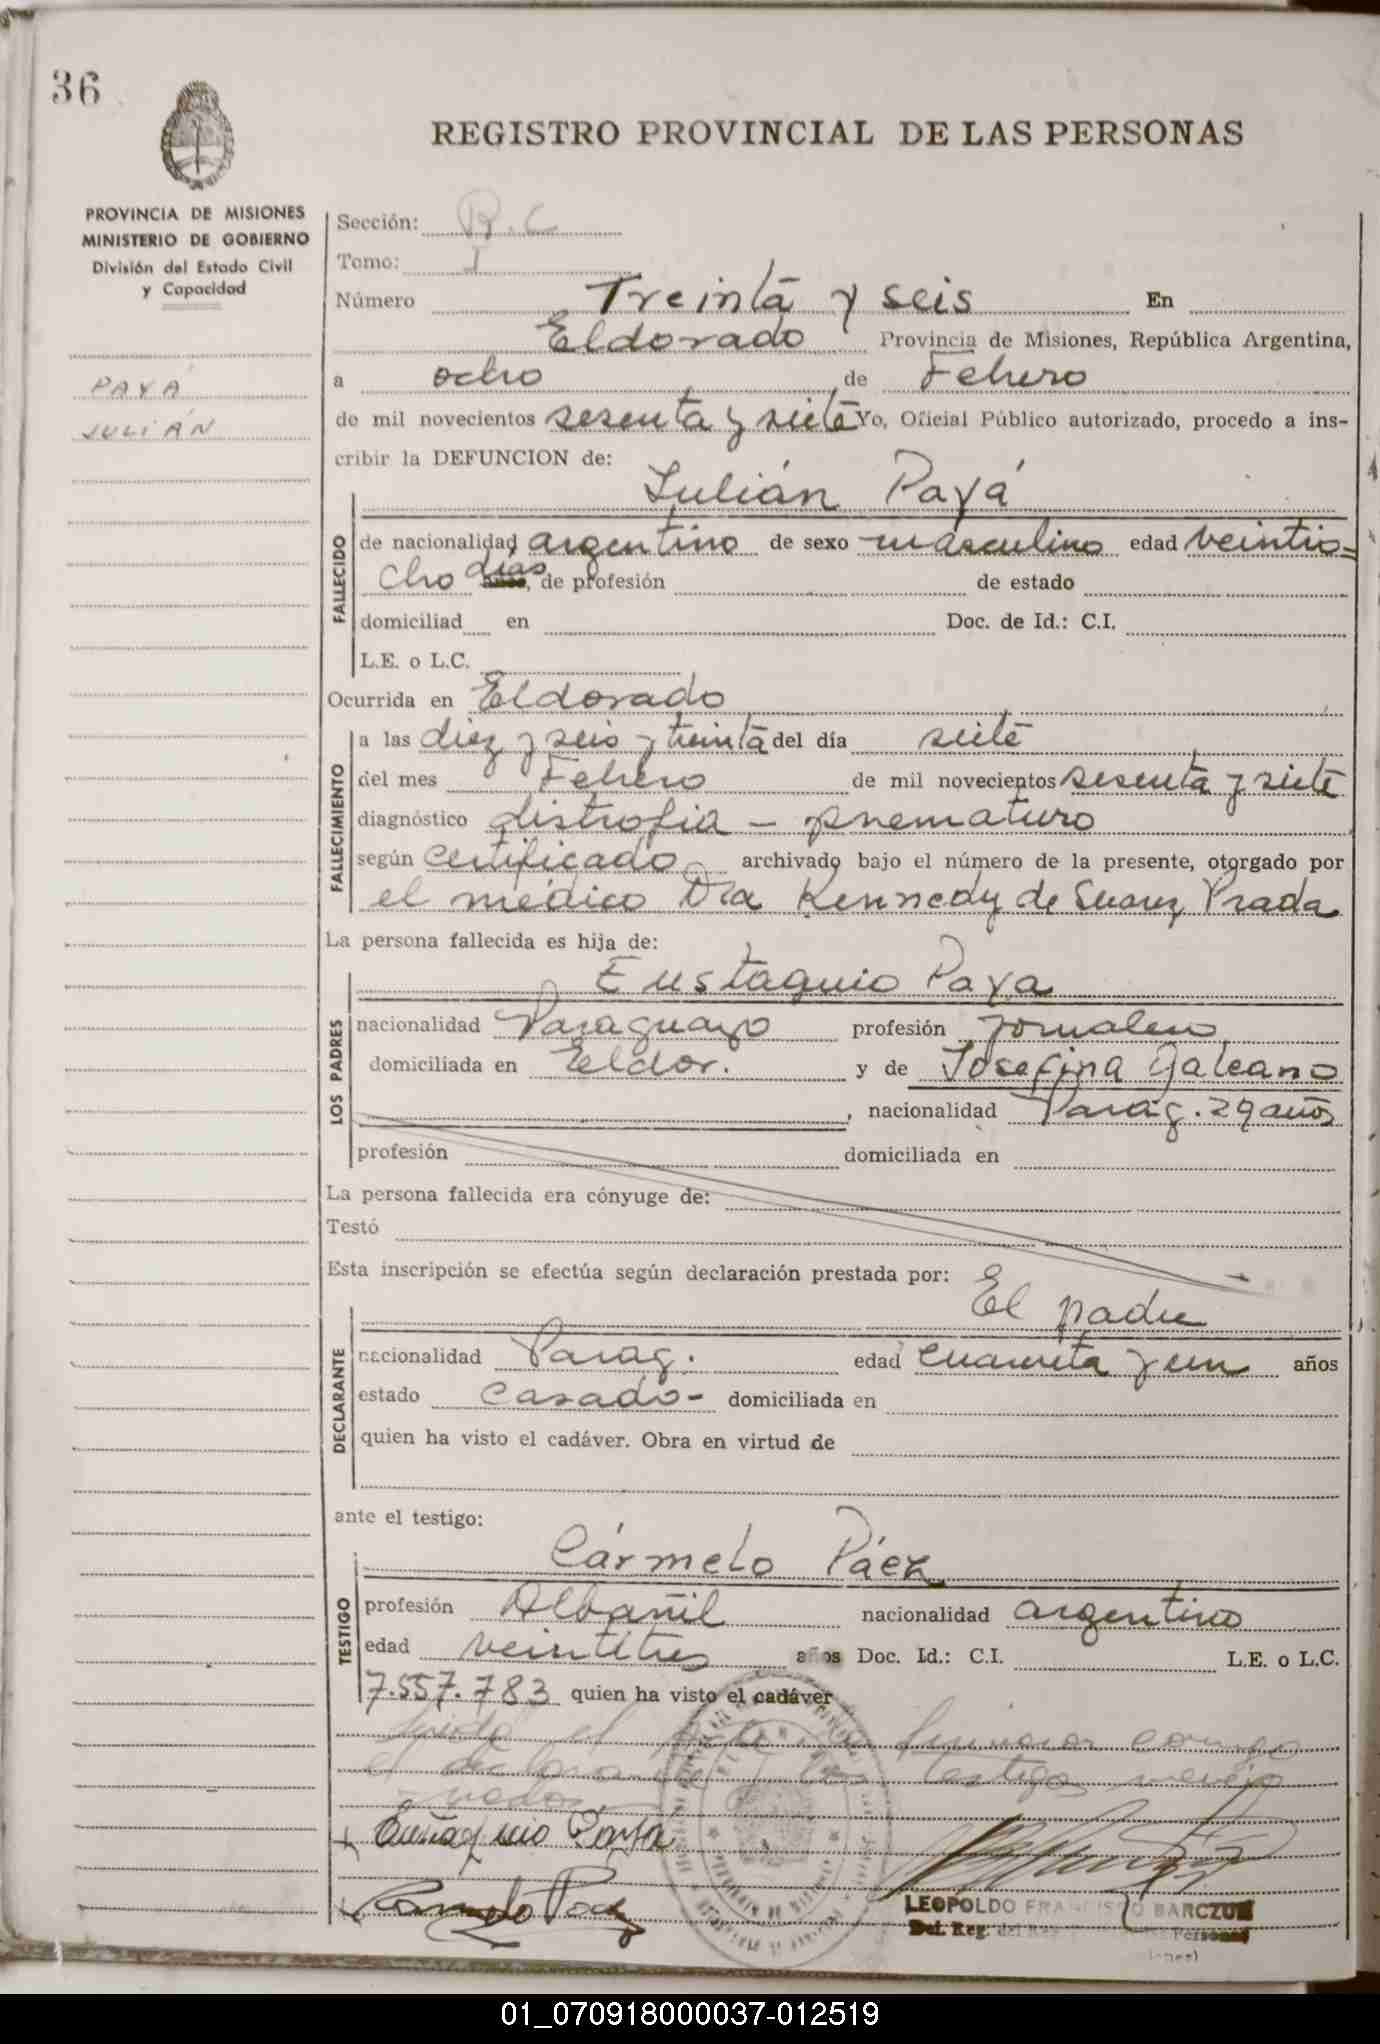 36
REGISTRO PROVINCIAL DE LAS PERSONAS
PROVINCIA DE MISIONES
MINISTERIO DE GOBIERNO
División del Estado Civil
y Capacidad
PAYÁ
JULIÁN
Sección: R.C
Tomo: I
Número Treinta y seis En
Eldorado Provincia de Misiones, República Argentina,
a ocho de Febrero
de mil novecientos sesenta y siete Yo, Oficial Público autorizado, procedo a ins-
cribir la DEFUNCION de:
Julián Payá
FALLECIDO
de nacionalidad argentino de sexo masculino edad veintio=
cho dias, de profesión de estado
domiciliad en Doc. de Id.: C.I.
L.E. o L.C.
Ocurrida en Eldorado
FALLECIMIENTO
a las diez y seis y treinta del día siete
del mes Febrero de mil novecientos sesenta y siete
diagnóstico distrofia - prematuro
según certificado archivado bajo el número de la presente, otorgado por
el médico Dra Kennedy de Suarez Prada
La persona fallecida es hija de:
Eustaquio Paya
LOS PADRES
nacionalidad Paraguayo profesión jornalero
domiciliada en Eldor. y de Josefina Galeano
, nacionalidad Parag. 29 años
profesión domiciliada en
La persona fallecida era cónyuge de:
Testó
Esta inscripción se efectúa según declaración prestada por:
El padre
DECLARANTE
nacionalidad Parag. edad cuarenta y un años
estado casado- domiciliada en
quien ha visto el cadáver. Obra en virtud de
ante el testigo:
Cármelo Páez
TESTIGO
profesión Albañil nacionalidad argentino
edad veintitres años Doc. Id.: C.I. L.E. o L.C.
7.557.783 quien ha visto el cadáver
el acta
el declarante y los testigos
Eustaquio Payá
Carmelo Paez
LEOPOLDO FRANCISCO BARCZUK
Del. Reg. del Reg. Personas
01_070918000037-012519